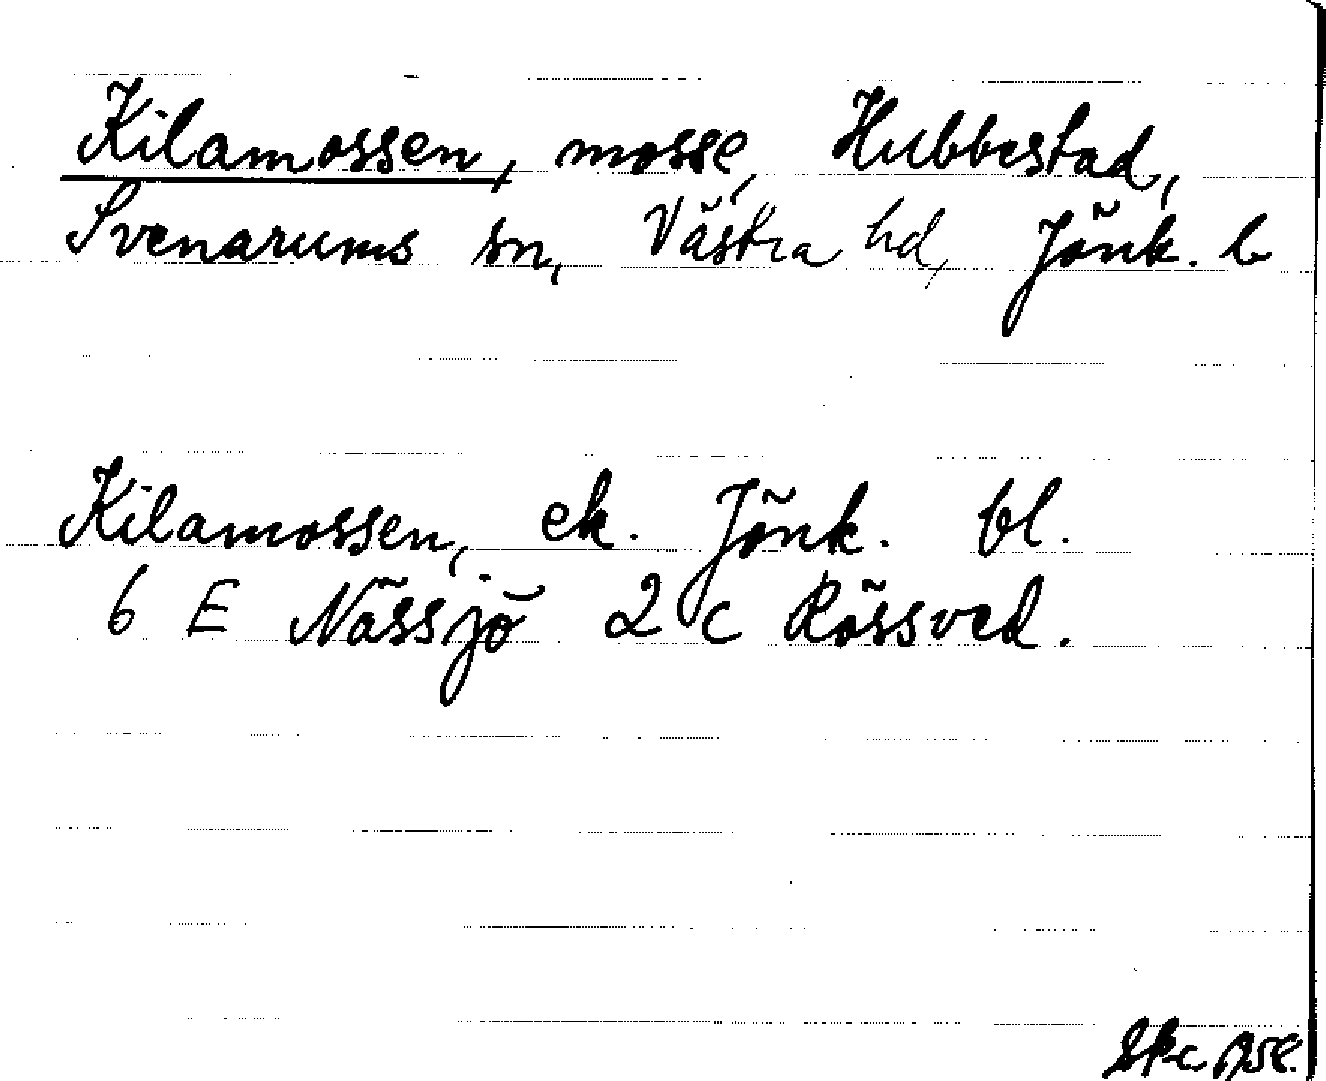 Kilamossen, mosse, Hubbestad,
Svenarums sn, Västra hd, Jönk. l
Kilamossen, ek. Jönk. bl.
6 E Nässjö 2 c Rössved.